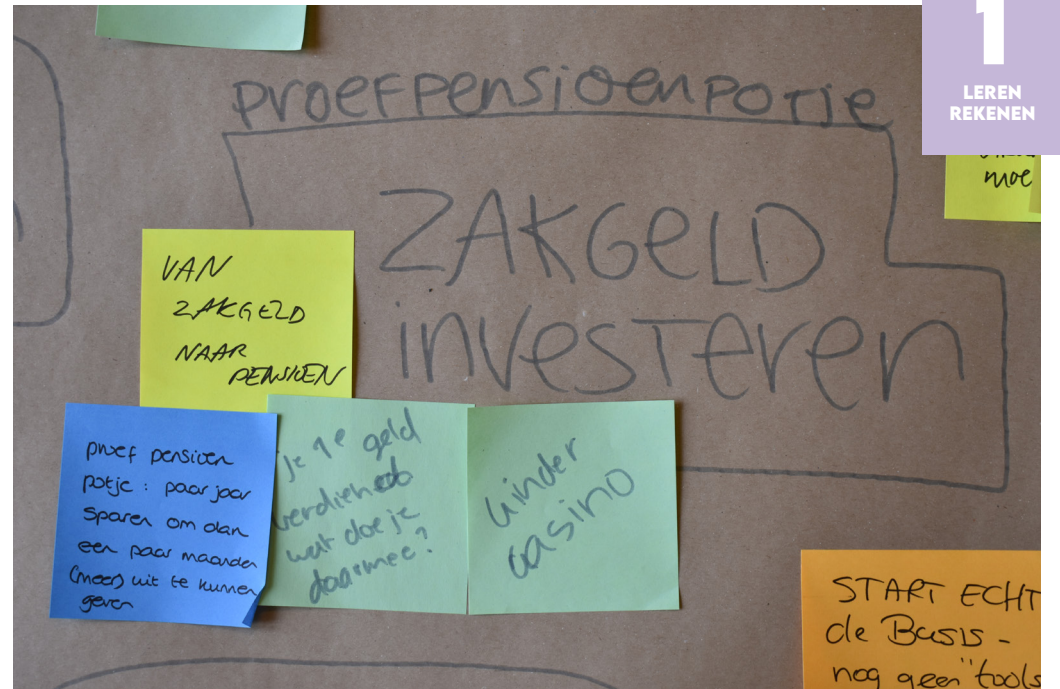 1
LEREN
REKENEN
proefpensioenpotje
ZAKGELD
investeren
moe
VAN
ZAKGELD
NAAR
PENSIOEN
proef pensioen
potje : paar jaar
sparen om dan
een paar maanden
(meer) uit te kunnen
geven
je 1e geld
verdiend
wat doe je
daarmee?
kinder
casino
START ECHT
de Basis -
nog geen "tools